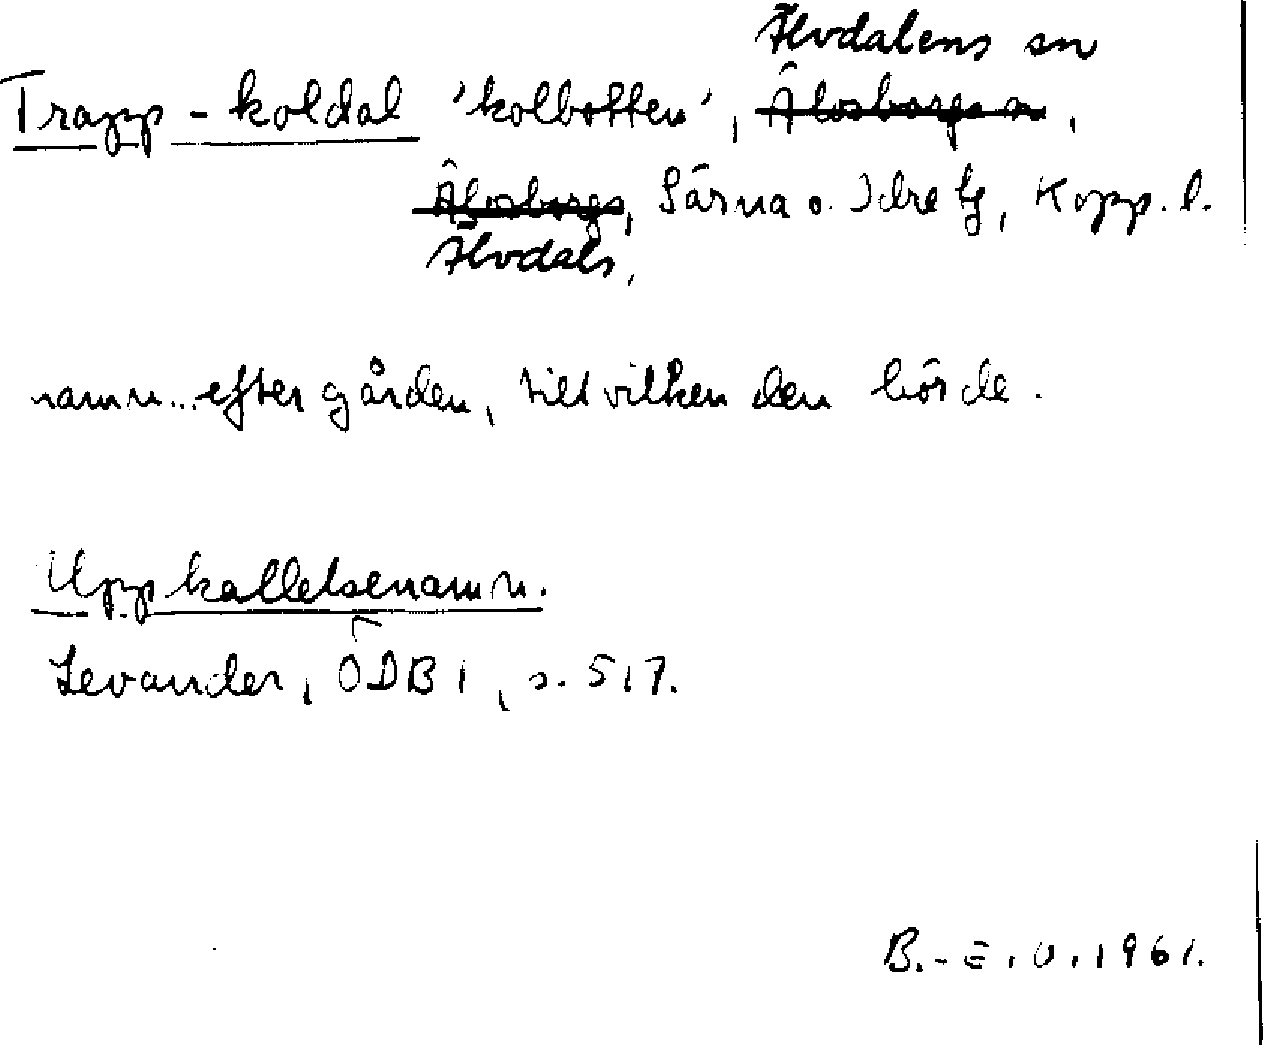 Älvdalens sn
Trapp-koldal 'kolbotten', Älvsborgs sn,
Älvsborgs, Särna o. Idre tg, Kopp. l.
Älvdals,
namn.. efter gården, till vilken den hörde.
Uppkallelsenamn.
Levander, ÖDB 1, s. 517.
B.-E. U. 1961.